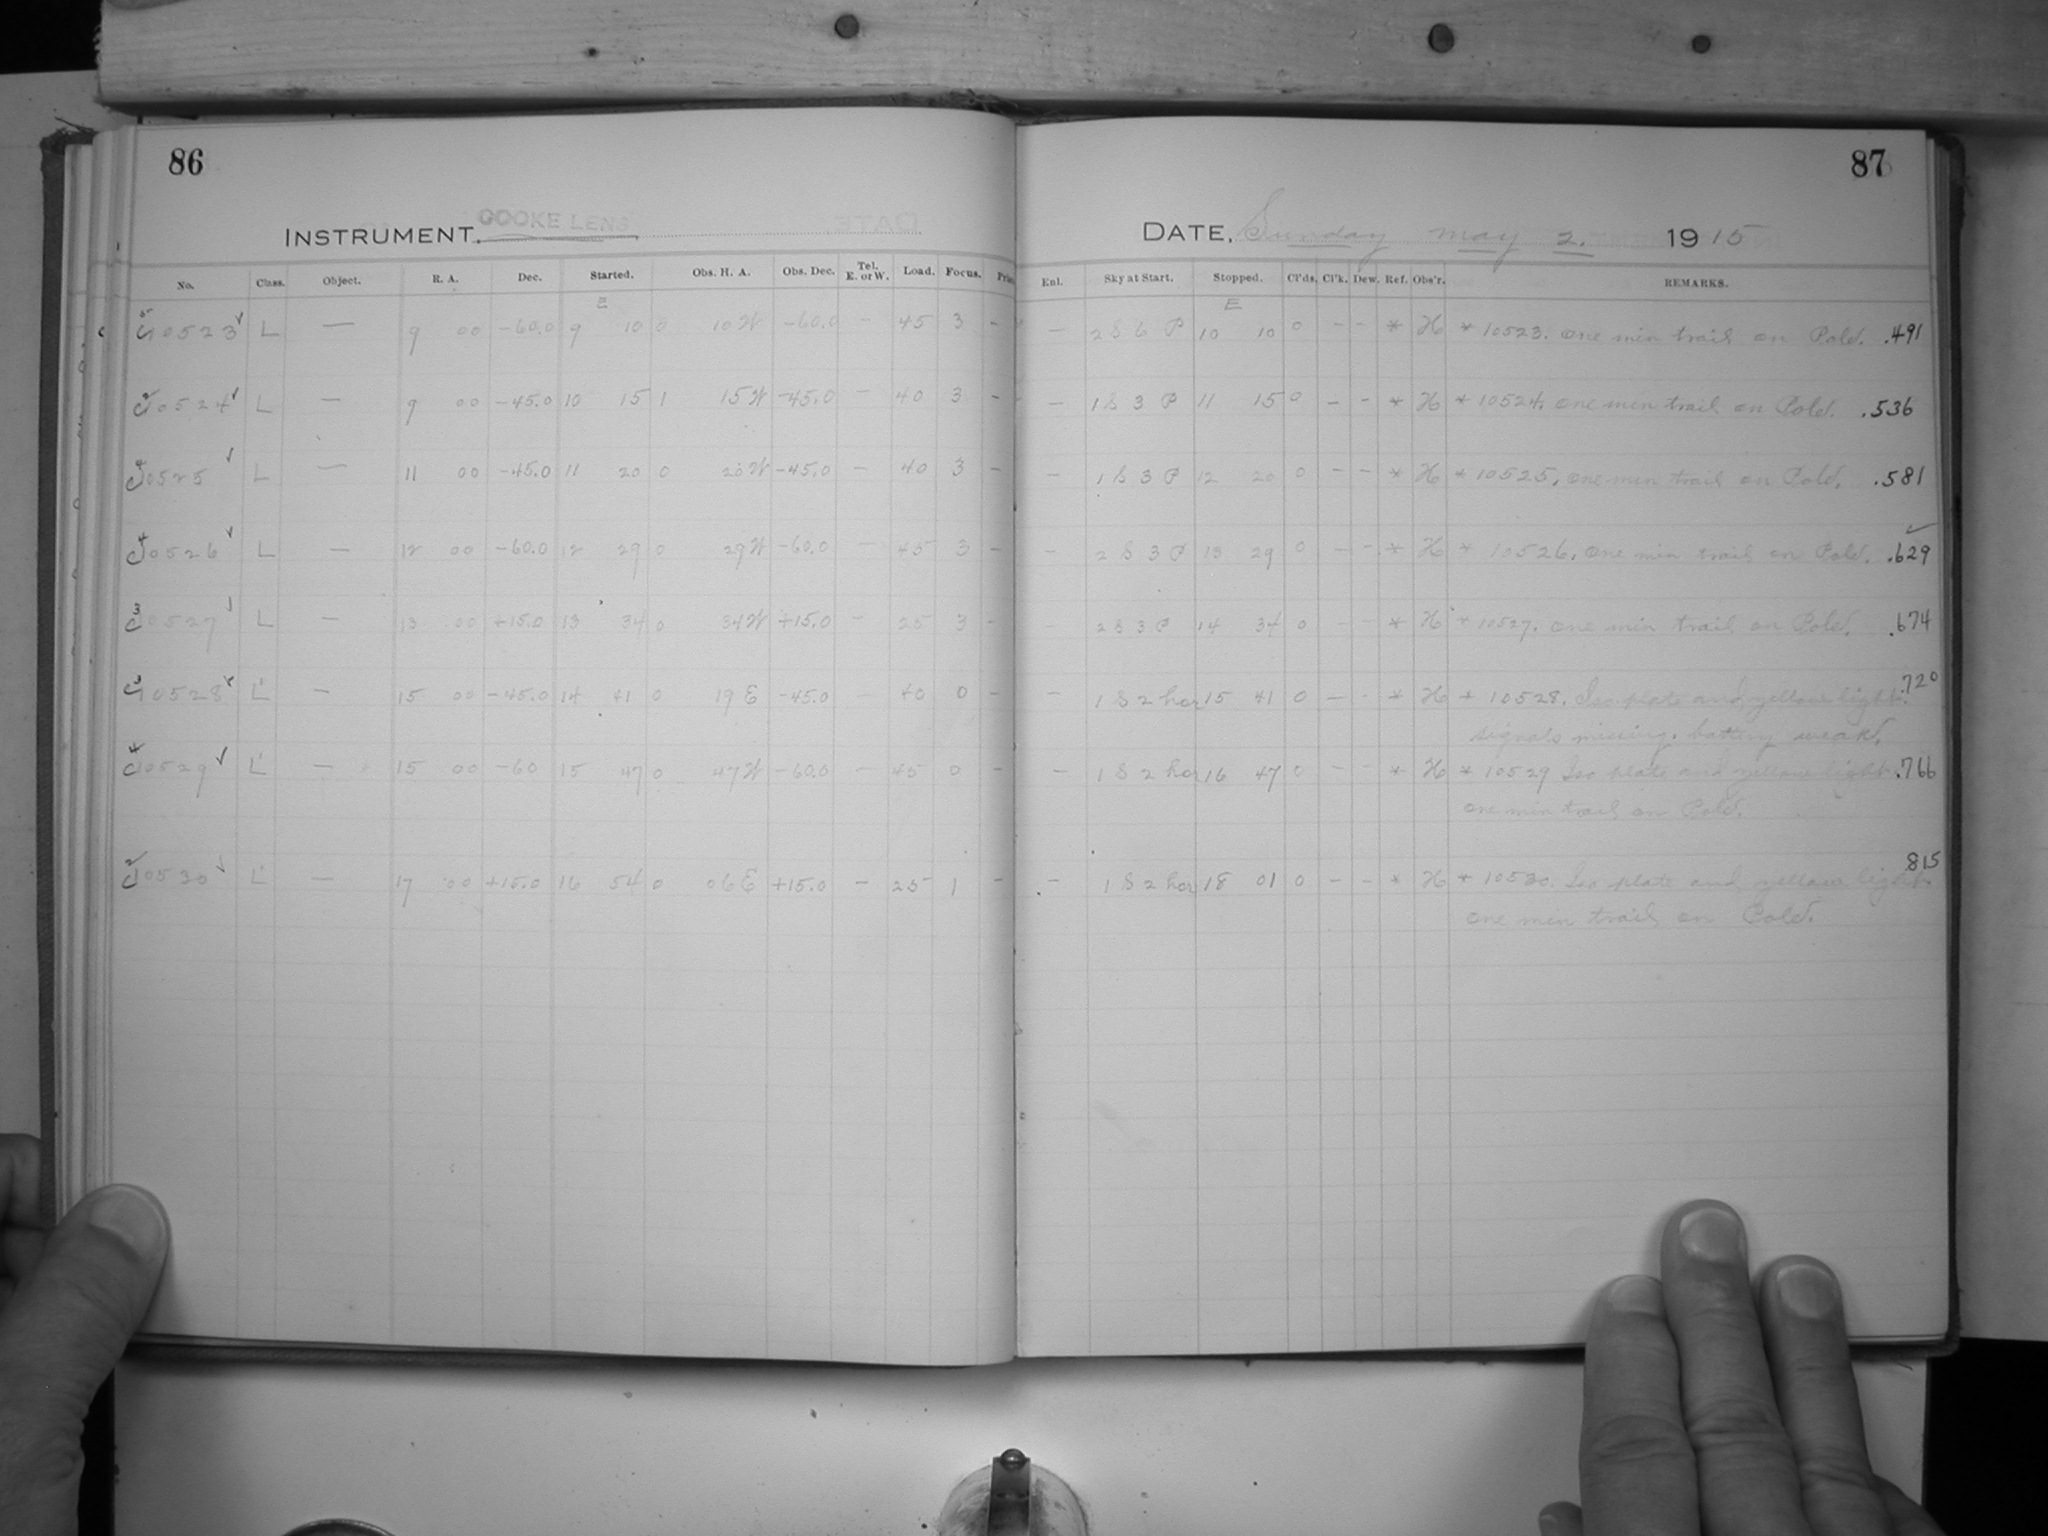 86
INSTRUMENT. COOKE LENS
No. Class. Object. R. A. Dec. Started. Obs. H. A. Obs. Dec. Tel. E. or W. Load. Focus.
E
10523 L — 9 00 -60.0 9 10 0 10 W -60.0 — 45 3 -
10524 L — 9 00 -45.0 10 15 1 15 W -45.0 — 40 3 -
10525 L — 11 00 -45.0 11 20 0 20 W -45.0 — 40 3 -
10526 L — 12 00 -60.0 12 29 0 29 W -60.0 — 45 3 -
10527 L — 13 00 +15.0 13 34 0 34 W +15.0 — 25 3 -
10528 L' — 15 00 -45.0 14 41 0 19 E -45.0 — 40 0 -
10529 L' — 15 00 -60 15 47 0 47 W -60.0 — 45 0 -
10530 L' — 17 00 +15.0 16 54 0 06 E +15.0 — 25 1 -
87
DATE. Sunday May 2. 1915
Enl. Sky at Start. Stopped. Cl'ds. Cl'k. Dew. Ref. Obs'r. REMARKS.
E
— 2 S 6 P 10 10 0 - - * H * 10523. One min trail on Pold. .491
— 1 S 3 P 11 15 0 - - * H * 10524. One min trail on Pold. .536
— 1 S 3 P 12 20 0 - - * H * 10525. One min trail on Pold. .581
— 2 S 3 P 13 29 0 - - * H * 10526. One min trail on Pold. .629
— 2 S 3 P 14 34 0 - - * H * 10527. One min trail on Pold. .674
— 1 S 2 hor 15 41 0 - - * H * 10528. Iso plate and yellow light. .720
signals missing. battery weak.
— 1 S 2 hor 16 47 0 - - * H * 10529 Iso plate and yellow light. .766
one min trail on Pold.
— 1 S 2 hor 18 01 0 - - * H * 10530. Iso plate and yellow light. .815
one min trail on Pold.